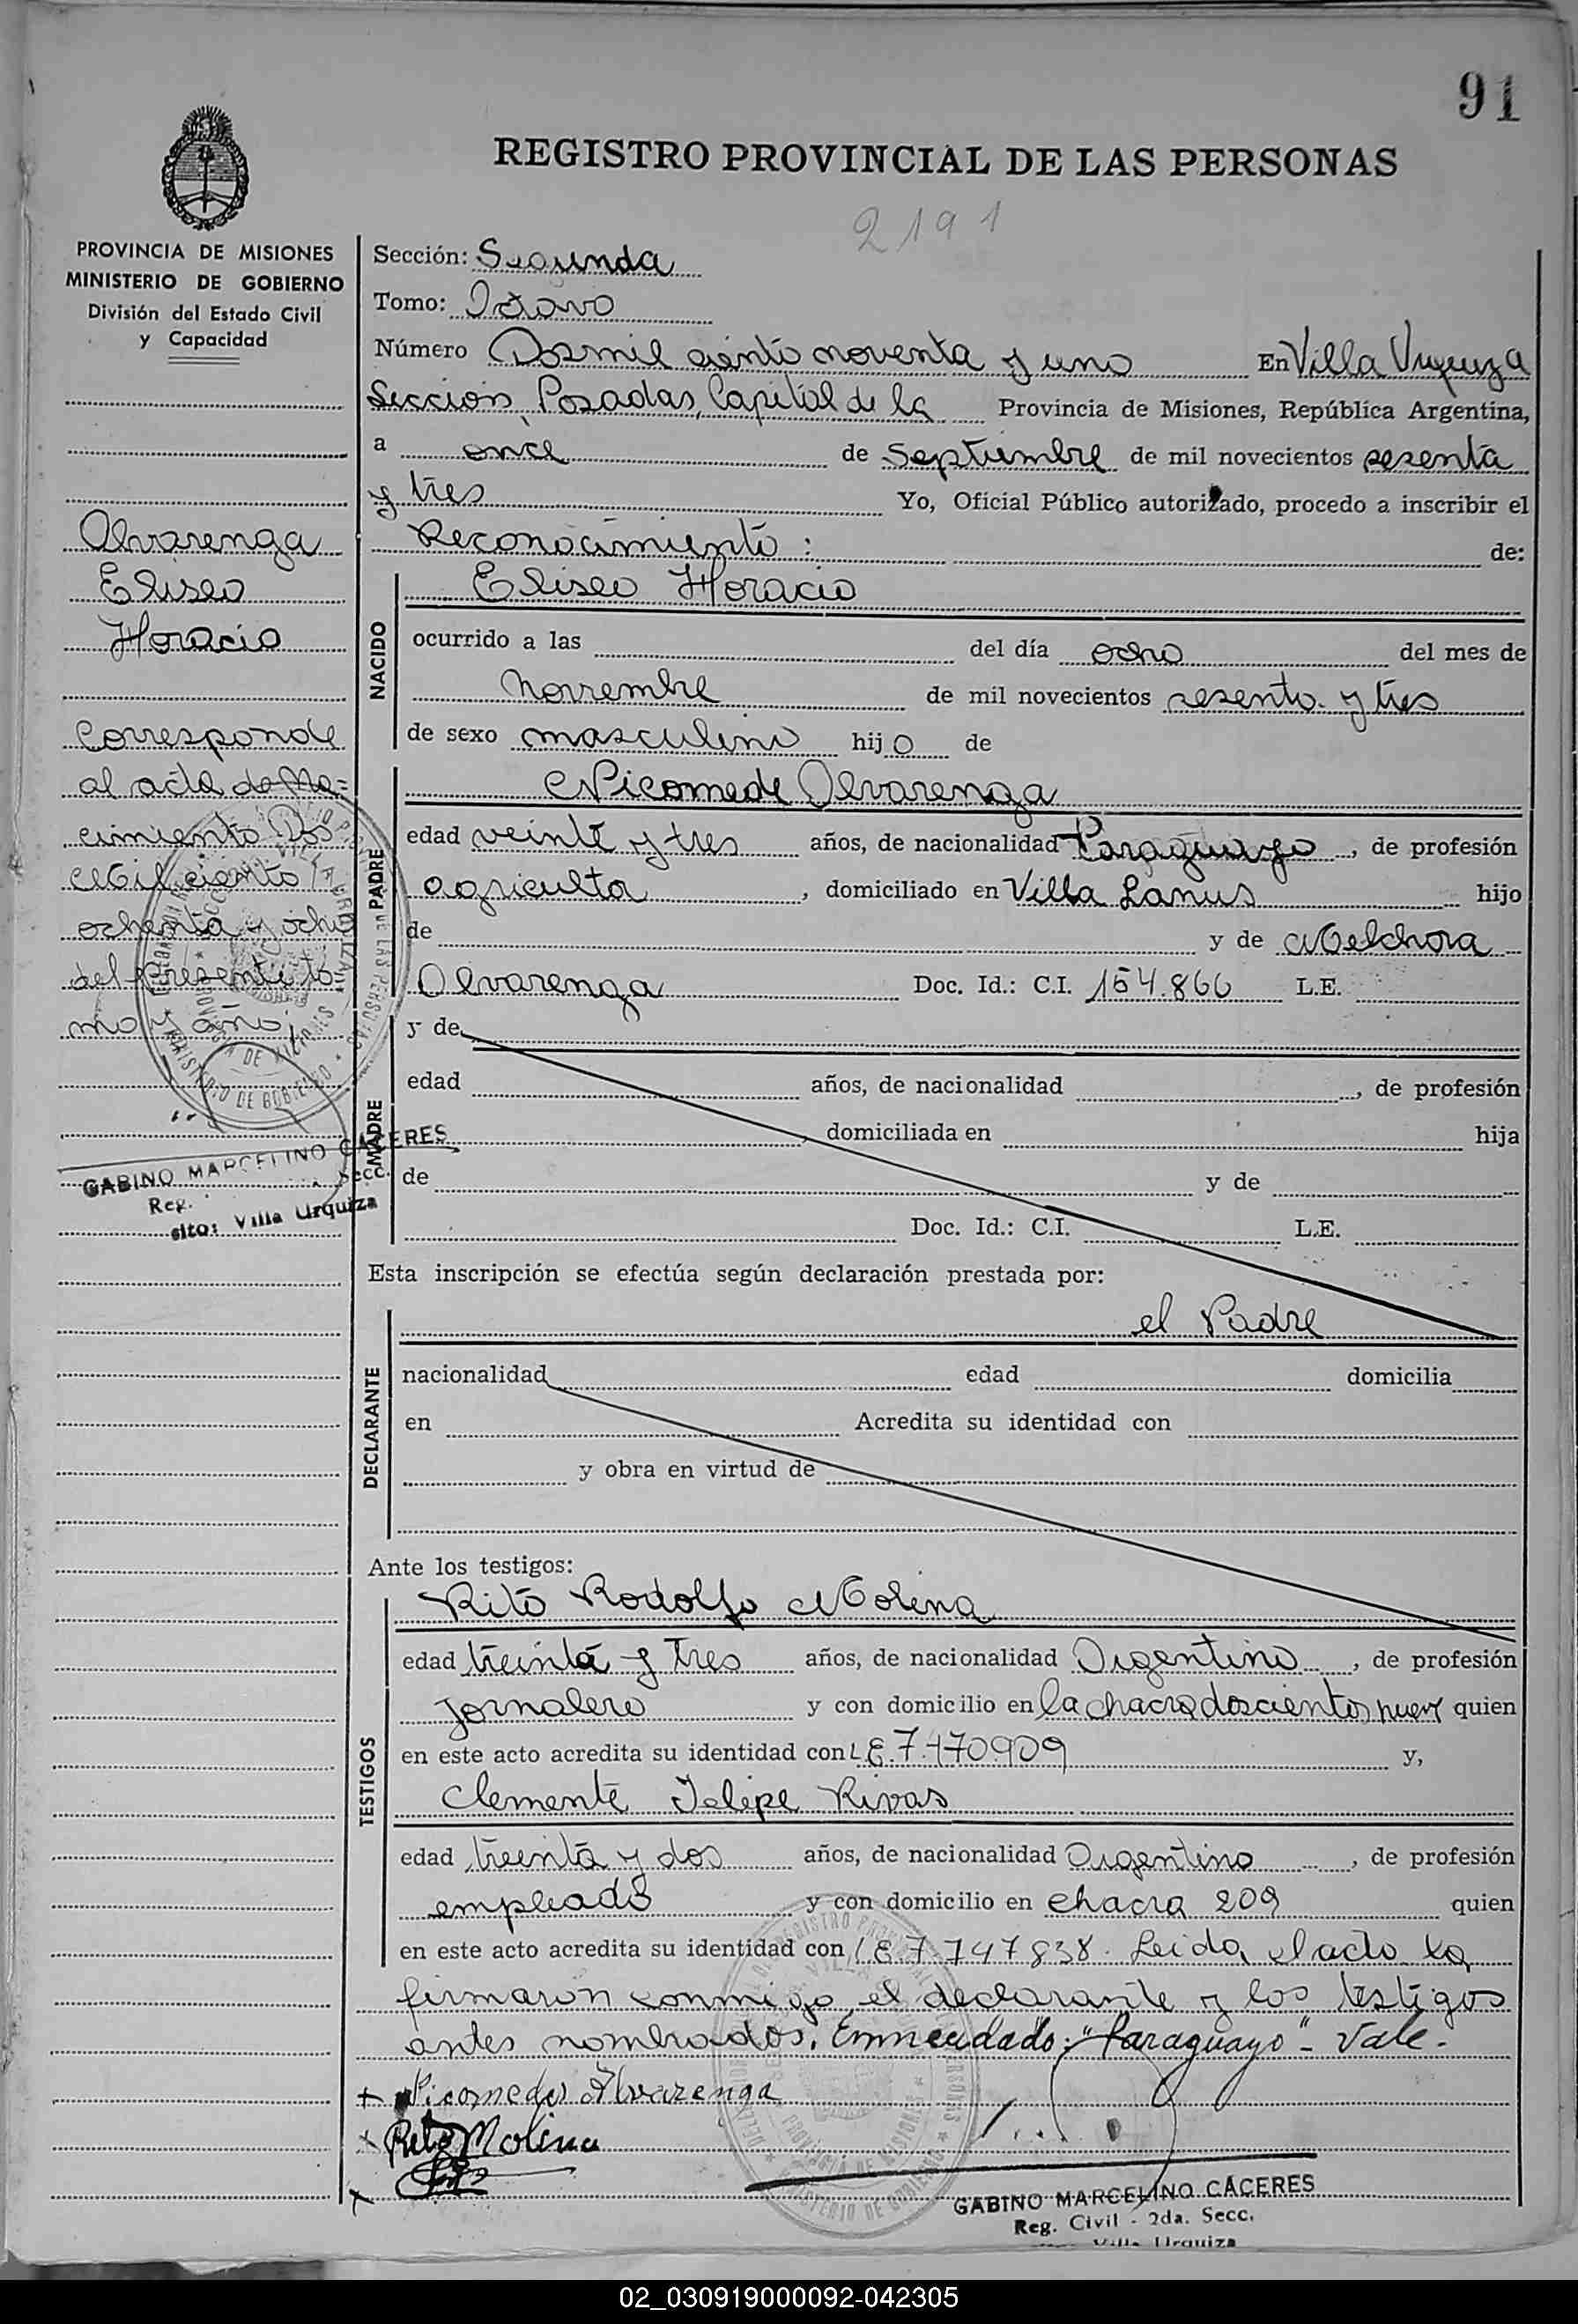 91
REGISTRO PROVINCIAL DE LAS PERSONAS
2191
PROVINCIA DE MISIONES
MINISTERIO DE GOBIERNO
División del Estado Civil
y Capacidad
Alvarenga
Eliseo
Horacio
Corresponde
al acta de Na=
cimiento Dos
Mil ciento
ochenta y ocho
del Presente to-
mo y año.
GABINO MARCELINO CACERES
Reg. Secc.
sito: Villa Urquiza
Sección: Segunda
Tomo: Octavo
Número Dosmil ciento noventa y uno En Villa Urquiza
Sección, Posadas, Capital de la Provincia de Misiones, República Argentina,
a once de Septiembre de mil novecientos sesenta
y tres Yo, Oficial Público autorizado, procedo a inscribir el
Reconocimiento : de:
NACIDO
Eliseo Horacio
ocurrido a las del día ocho del mes de
Noviembre de mil novecientos sesenta y tres
de sexo masculino hijo de
PADRE
Nicomede Alvarenga
edad veinte y tres años, de nacionalidad Paraguayo, de profesión
agriculta, domiciliado en Villa Lanus hijo
de y de Melchora
Alvarenga Doc. Id.: C.I. 154.866 L.E.
MADRE
y de
edad años, de nacionalidad , de profesión
, domiciliada en hija
de y de
Doc. Id.: C.I. L.E.
Esta inscripción se efectúa según declaración prestada por:
DECLARANTE
el Padre
nacionalidad edad domicilia
en Acredita su identidad con
y obra en virtud de
Ante los testigos:
TESTIGOS
Rito Rodolfo Molina
edad treinta y tres años, de nacionalidad Argentino, de profesión
jornalero y con domicilio en la chacra doscientos nueve quien
en este acto acredita su identidad con L.E. 7.470909 y,
Clemente Felipe Rivas
edad treinta y dos años, de nacionalidad Argentino, de profesión
empleado y con domicilio en chacra 209 quien
en este acto acredita su identidad con L.E. 7.747838. Leida el acta la
firmaron conmigo, el declarante y los testigos
antes nombrados. Enmendado: "Paraguayo" - Vale.
x Nicomedes Alvarenga
x Rito Molina
x
GABINO MARCELINO CACERES
Reg. Civil - 2da. Secc.
Villa Urquiza
02_030919000092-042305